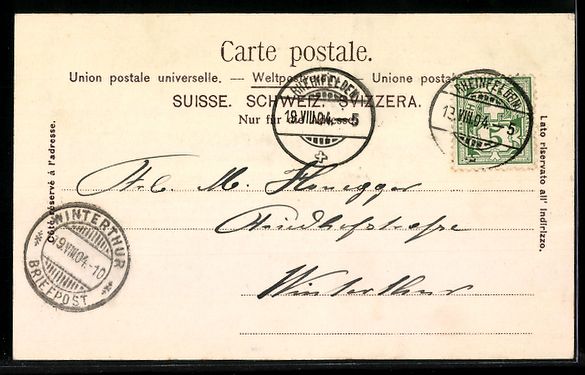 Carte postale.
Union postale universelle. — Weltpostverein. — Unione postale
SUISSE. SCHWEIZ. SVIZZERA.
Nur für die Adresse.
Côté réservé à l'adresse.
Lato riservato all' indirizzo.
RHEINFELDEN
19.VIII.04.–5
RHEINFELDEN
19.VIII.04.–5
5
M. Honegger
Friedhofstrasse
Winterthur
WINTERTHUR
19.VIII.04.–10
BRIEFPOST